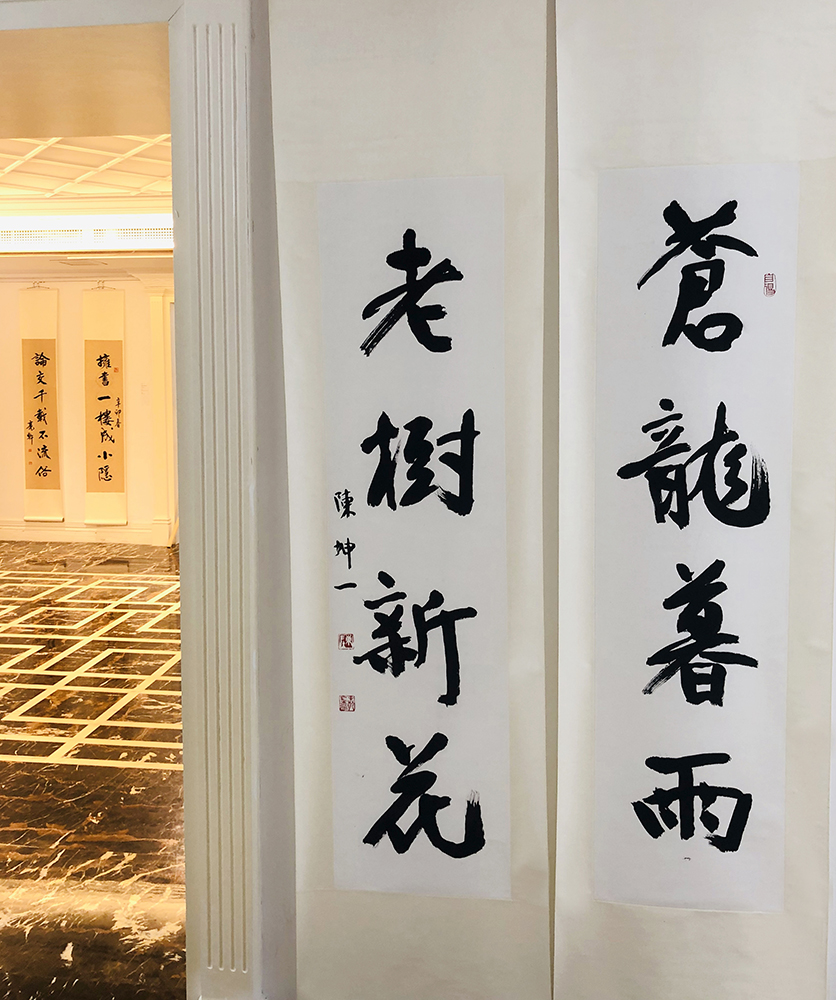 蒼龍暮雨
老樹新花
陳坤一
擁書一樓成小隱
辛卯春
論交千載不流俗